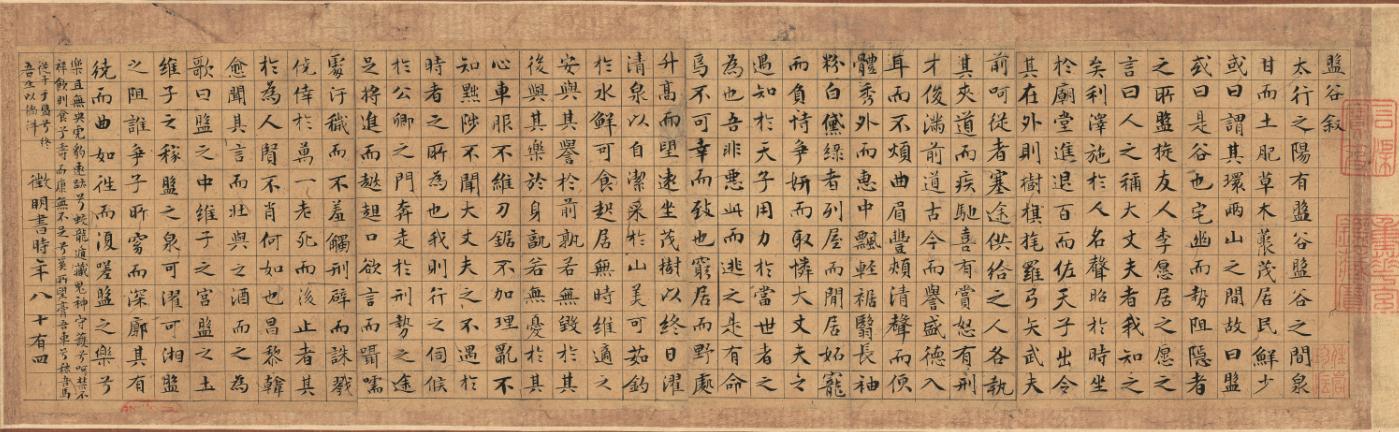 盤谷叙
太行之陽有盤谷盤谷之間泉
甘而土肥草木藂茂居民鮮少
或曰謂其環兩山之間故曰盤
或曰是谷也宅幽而勢阻隱者
之所盤旋友人李愿居之愿之
言曰人之稱大丈夫者我知之
矣利澤施於人名聲昭於時坐
於廟堂進退百而佐天子出令
其在外則樹棋旄羅弓矢武夫
前呵從者塞途供給之人各執
其夾道而疾馳喜有賞怒有刑
才俊滿前道古今而譽盛德入
耳而不煩曲眉豐頰清聲而便
體秀外而惠中飄輕裾翳長袖
粉白黛綠者列屋而閒居妬寵
而負恃争妍而取憐大丈夫之
遇知於天子用力於當世者之
為也吾非惡此而逃之是有命
焉不可幸而致也窮居而野處
升高而望遠坐茂樹以終日濯
清泉以自潔采於山美可茹釣
於水鮮可食起居無時維適之
安與其譽於前孰若無毀於其
後與其樂於身孰若無憂於其
心車服不維刀鋸不加理亂不
知黜陟不聞大丈夫之不遇於
時者之所為也我則行之伺候
於公卿之門奔走於刑勢之途
足將進而趑趄口欲言而囁嚅
處汙穢而不羞觸刑辟而誅戮
僥倖於萬一老死而後止者其
於為人賢不肖何如也昌黎韓
愈聞其言而壯與之酒而為
歌曰盤之中維子之宮盤之土
維子之稼盤之泉可濯可湘盤
之阻誰争子所窈而深廓其有
繞而曲如徃而復嗟盤之樂兮
樂且無央虎豹遠跡兮蛟龍遁藏鬼神守護兮呵禁不
祥飲則食兮壽而康無不足兮奚所望膏吾車兮秣吾馬
從子于盤兮終
吾生以徜徉
徵明書時年八十有四